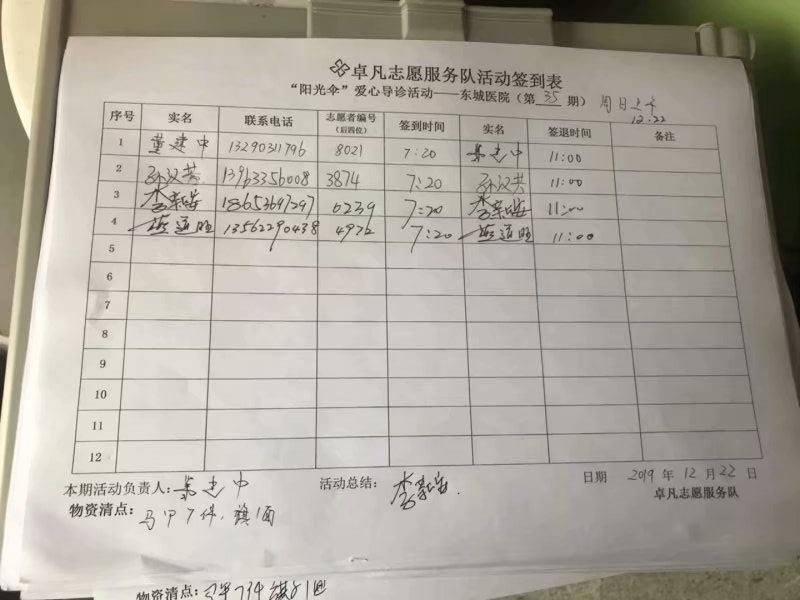 卓凡志愿服务队活动签到表
“阳光伞”爱心导诊活动——东城医院（第 35 期） 周日上午
12.22
序号 实名 联系电话 志愿者编号（后四位） 签到时间 实名 签退时间 备注
1 董建中 13290311796 8021 7:20 董建中 11:00
2 孙汉芸 13963356008 3874 7:20 孙汉芸 11:00
3 李 18653697297 0239 7:20 李 11:00
4 13562290438 4972 7:20 11:00
5
6
7
8
9
10
11
12
本期活动负责人：董建中 活动总结：李 日期 2019 年 12 月 22 日
物资清点：马甲7件，旗1面 卓凡志愿服务队
物资清点：马甲7件 旗1面